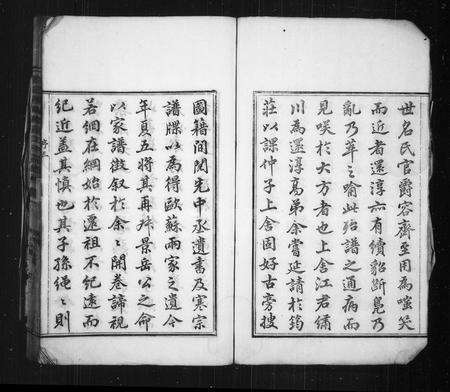 世名民官爵容齋至用為嗤笑
而近者還淳亦有續貂斷鳧乃
亂乃萃之喻此殆譜之通病而
見咲於大方者也上舍江君繡
川為還淳高弟余嘗延請於筠
莊以課仲子上舍固好古旁搜
國籍間閱先中丞遺書及寒宗
譜牒以為得歐蘇兩家之遺今
年夏五將其再姪景岳公之命
以家譜徵叙於余余開卷諦視
若網在綱始於遷祖不紀遠而
紀近蓋其慎也其子孫繩繩則
序三